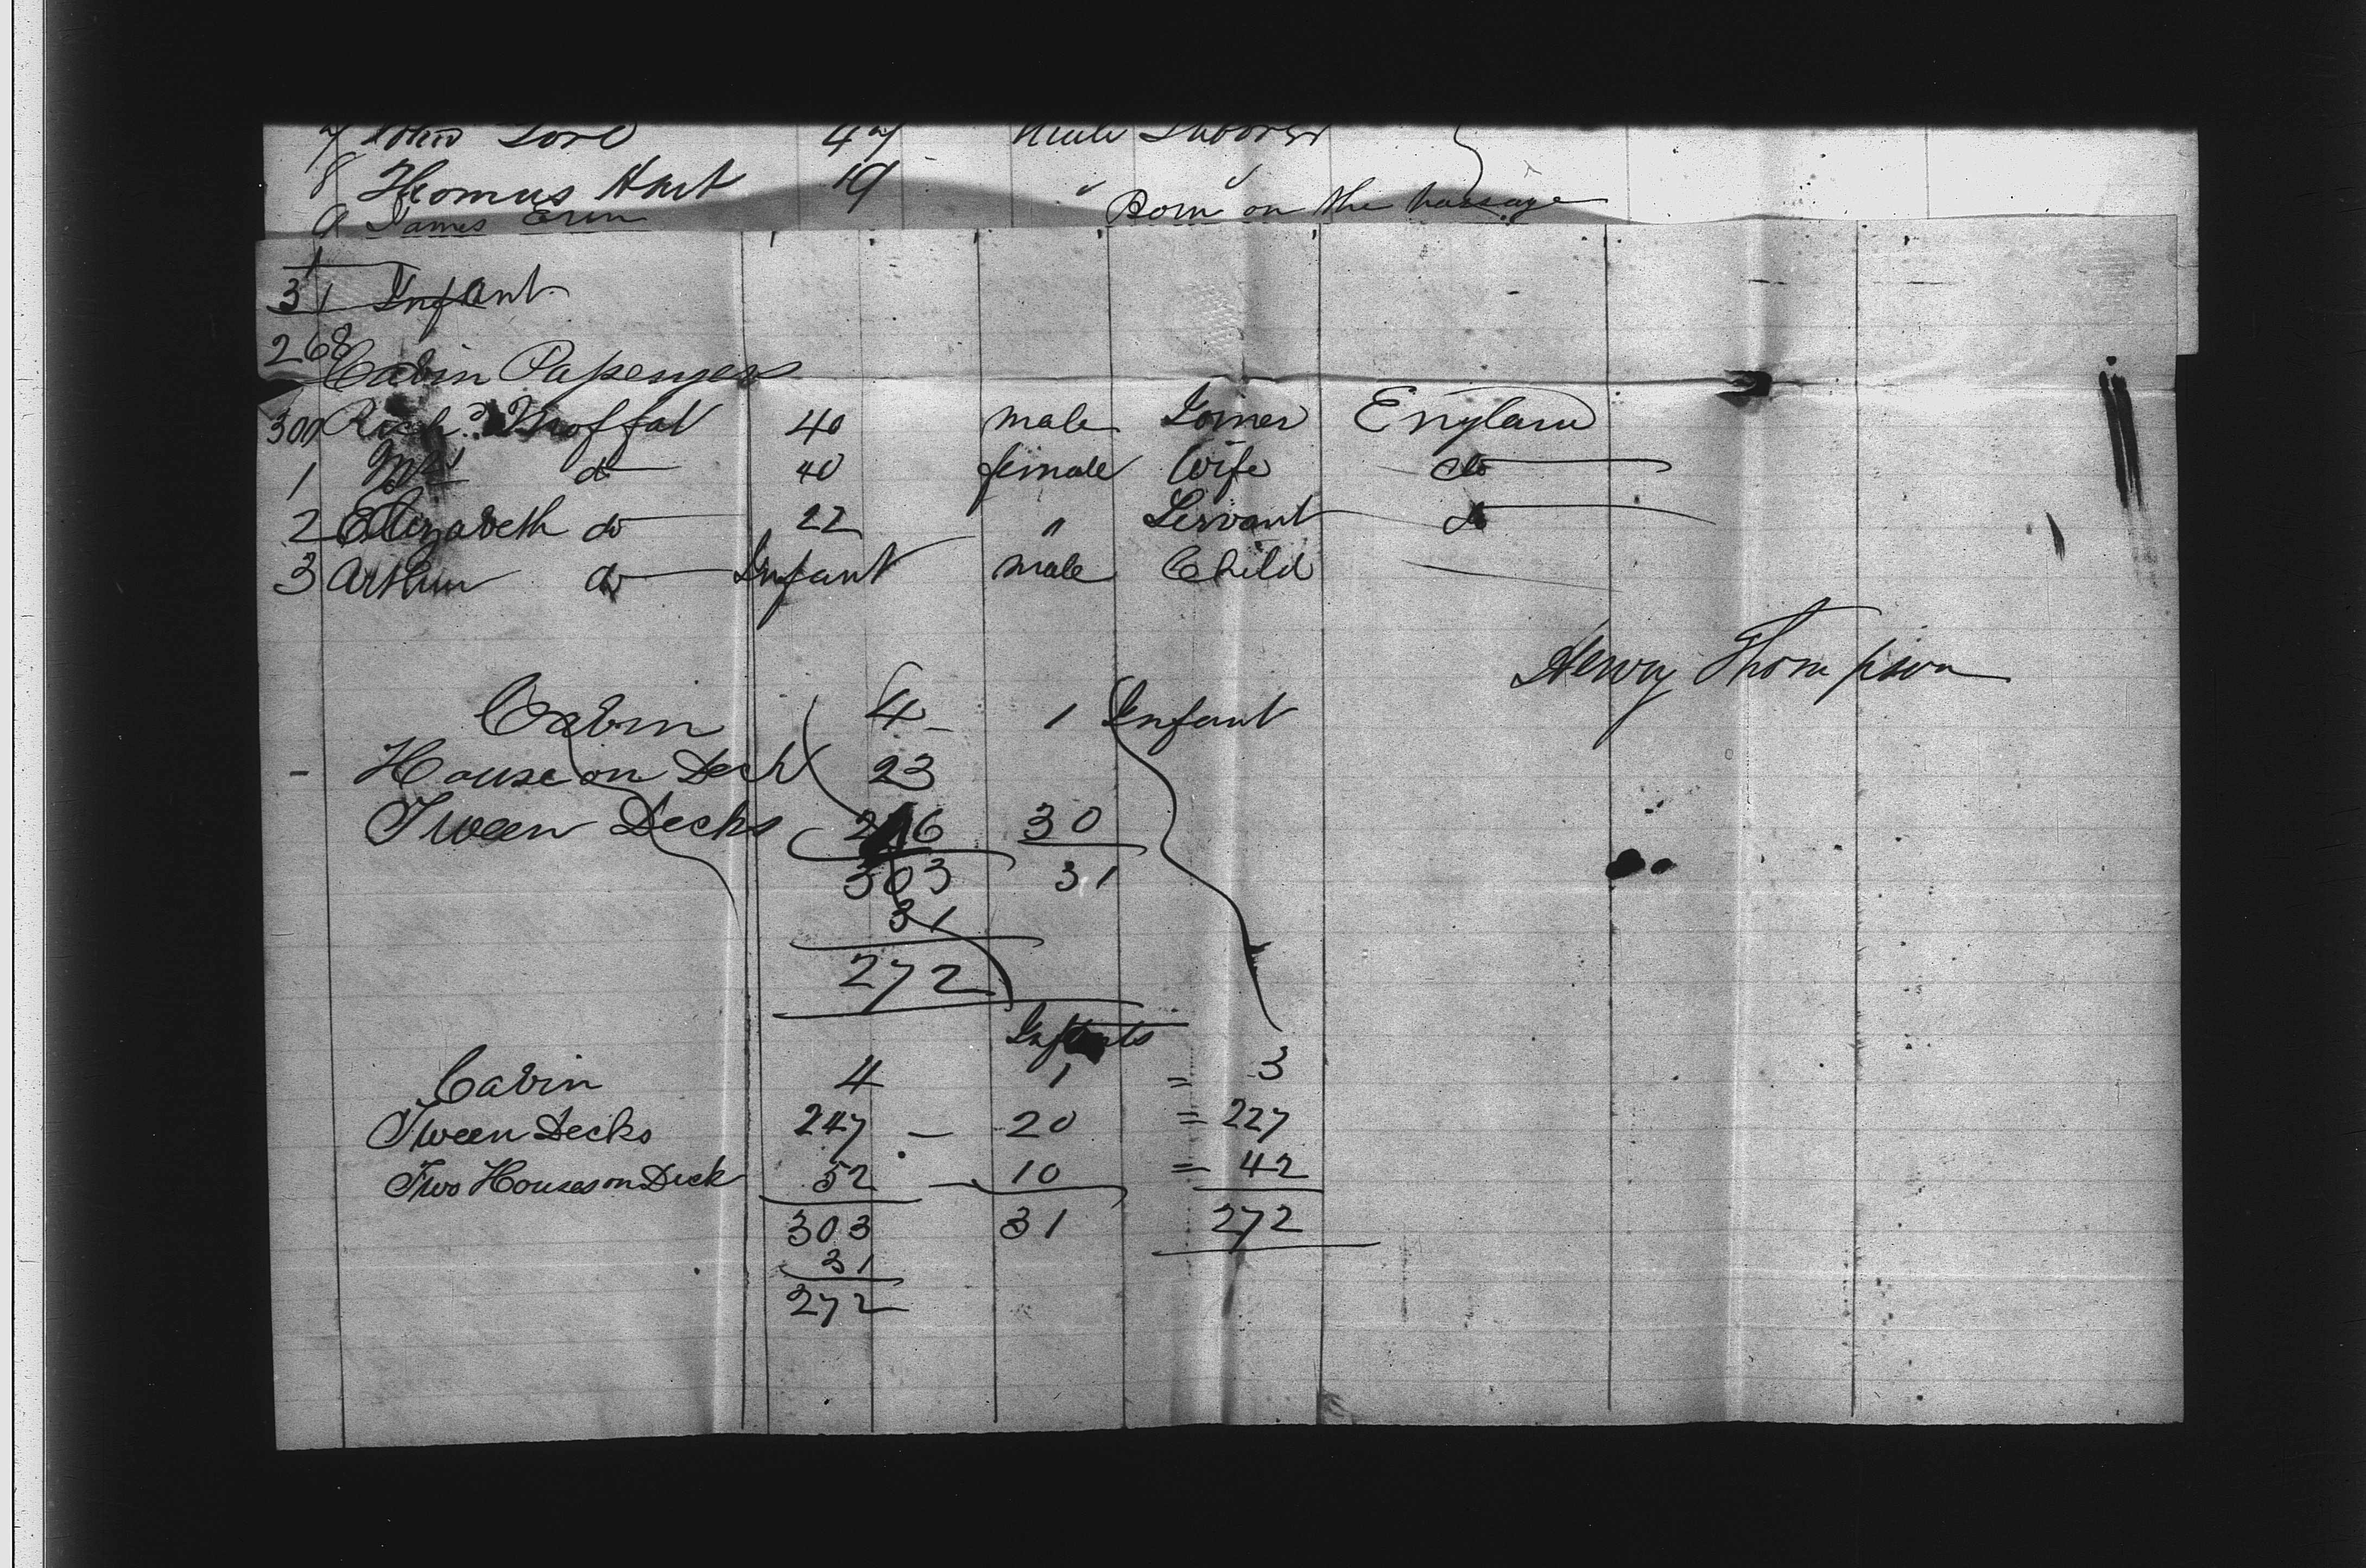 7 John 47 male Laborer
8 Thomas Hart 19 " "
9 James Erin Born on the Passage
31 Infant
268
Cabin Passengers
300 Rich.d Moffat 40 male Joiner England
1 Mrs do 40 female Wife do
2 Elizabeth do 22 " Servant do
3 Arthur do Infant male Child
Henry Thompson
Cabin 4 - 1 Infant
House on Deck 23
Tween Decks 276 30
303 31
31
272
Infants
Cabin 4 1 = 3
Tween Decks 247 - 20 = 227
Two Houses on Deck 52 - 10 = 42
303 31 272
31
272